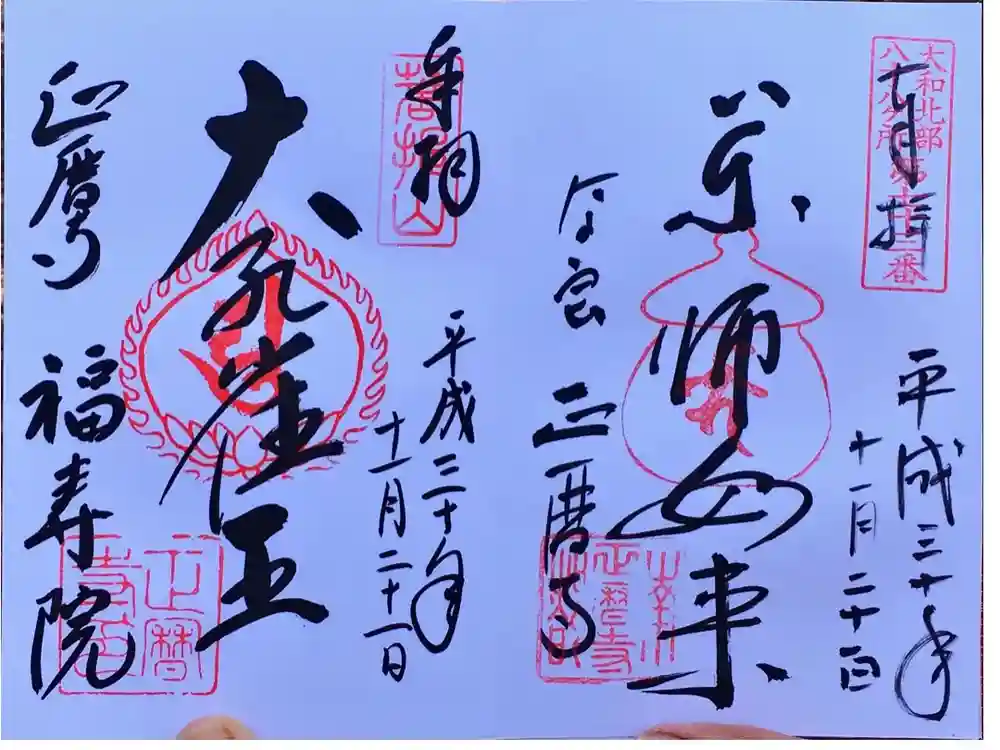 大和北部
八十八ヶ所
奉拝
平成三十年
十一月二十一日
薬師如来
正暦寺
奉拝
菩提山
平成三十年
十一月二十一日
大孔雀王
正暦寺
福寿院